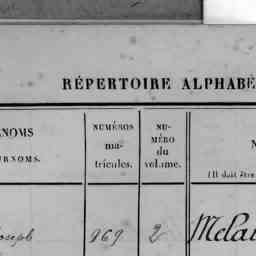 RÉPERTOIRE ALPHABÉ
NOMS
URNOMS.
NUMÉROS
ma-
tricules.
NU-
MÉRO
du
volume.
N
(Il doit être
oseph
969
2